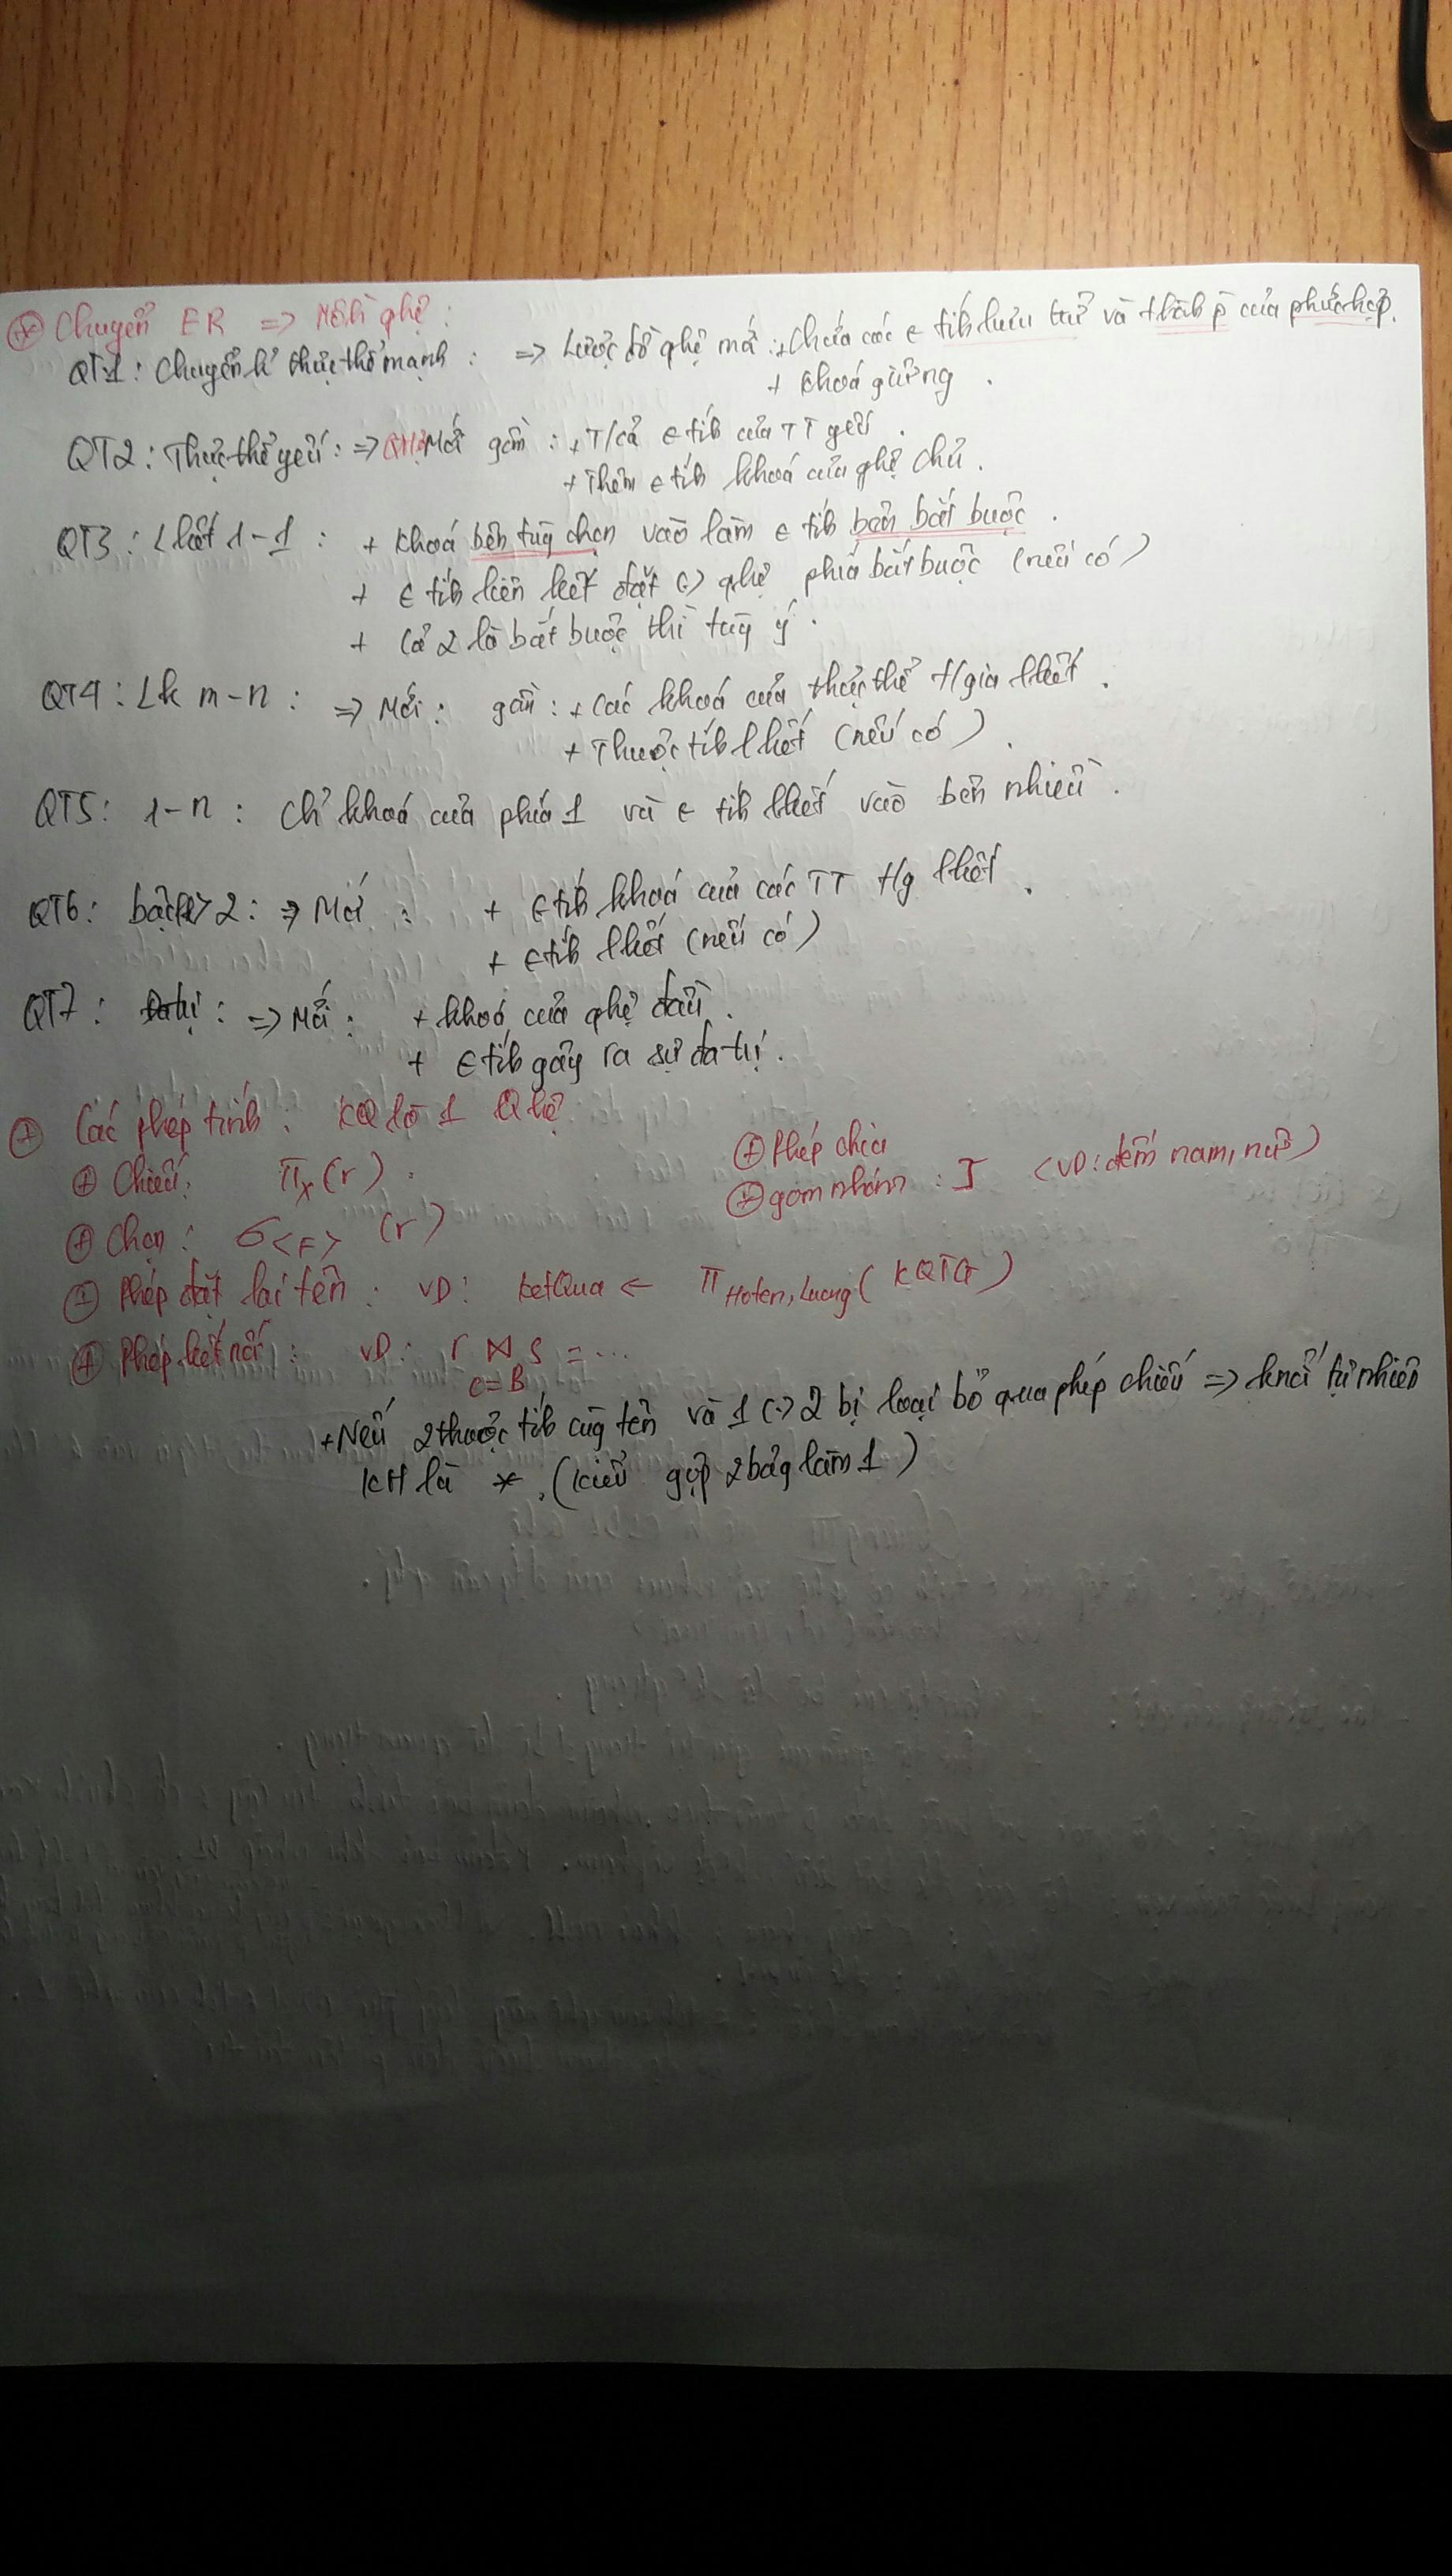 Chuyển ER => Mô h qhệ :
QT1 : Chuyển k' thực thể mạnh : => Lược đồ qhệ mới : + Chứa các € tíh lưu trữ và thàh p̀ của phức hợp.
+ Khoá gường .
QT2 : Thực thể yếu : => Mới gồm : + T/cả € tíh của TT yếu .
+ Thêm € tíh khoá của qhệ chủ .
QT3 : L kết 1-1 : + Khoá bên tùy chọn vào làm € tíh bên bắt buộc .
+ € tíh liên kết đặt (.) qhệ phía bắt buộc (nếu có)
+ Cả 2 là bắt buộc thì tuỳ ý .
QT4 : Lk m-n : => Mới : gồm : + Các khoá của thực thể t/gia lkết .
+ Thuộc tíh lkết (nếu có) .
QT5 : 1-n : chỉ khoá của phía 1 và € tíh lkết vào bên nhiều .
QT6 : bậc > 2 : => Mới : + € tíh khoá của các TT t/g lkết .
+ € tíh lkết (nếu có)
QT7 : Đa trị : => Mới : + khoá của qhệ đầu .
+ € tíh gây ra sự đa trị .
Các phép tính : KQ là 1 Qhệ
+ Chiếu : π x (r) .
+ Phép chia
+ gom nhóm : ℑ (VD : đếm nam, nữ)
+ Chọn : σ <F> (r)
+ Phép đặt lại tên : VD : KetQua ← π Hoten, Luong ( KQTG )
+ Phép kết nối : VD : r ⋈ s = ...
C = B
+ Nếu 2 thuộc tíh cùg tên và 1 (.) 2 bị loại bỏ qua phép chiếu => knối tự nhiên
KH là * . (kiểu gộp 2 bảg làm 1)